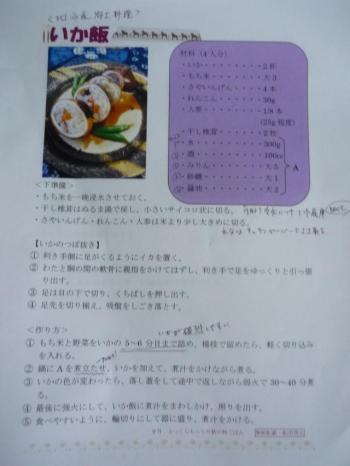 いか飯
材料(4人分)
・いか・・・・・・・2杯
・もち米・・・・・・大3
・さやいんげん・・・4本
・れんこん・・・・・30g
・人参・・・・・・・1/8本
(25g程度)
・干し椎茸・・・・・2枚
・水・・・・・・・・300g
・酒・・・・・・・・100cc
・みりん・・・・・・大5
・砂糖・・・・・・・大1
・醤油・・・・・・・大2
A
<下準備>
・もち米を一晩浸水させておく。
・干し椎茸はぬるま湯で戻し、小さいサイコロ状に切る。
・さやいんげん・れんこん・人参は米より少し大きめに切る。
【いかのつぼ抜き】
① 利き手側に足がくるようにイカを置く。
② わたと胴の間の軟骨に親指をかけてはずし、利き手で足をゆっくりと引っ張
り出す。
③ 足は目の下で切り、くちばしを押し出す。
④ 足先を切り揃え、吸盤をしごき落とす。
<作り方>
① もち米と野菜をいかの5~6分目まで詰め、楊枝で留めたら、軽く切り込み
を入れる。
② 鍋にAを煮立たせ、いかを加えて、煮汁をかけながら煮る。
③ いかの色が変わったら、落し蓋をして途中で返しながら弱火で30~40分煮
る。
④ 最後に強火にして、いか飯に煮汁をまわしかけ、照りを出す。
⑤ 食べやすいように、輪切りにして器に盛り、煮汁をかける。